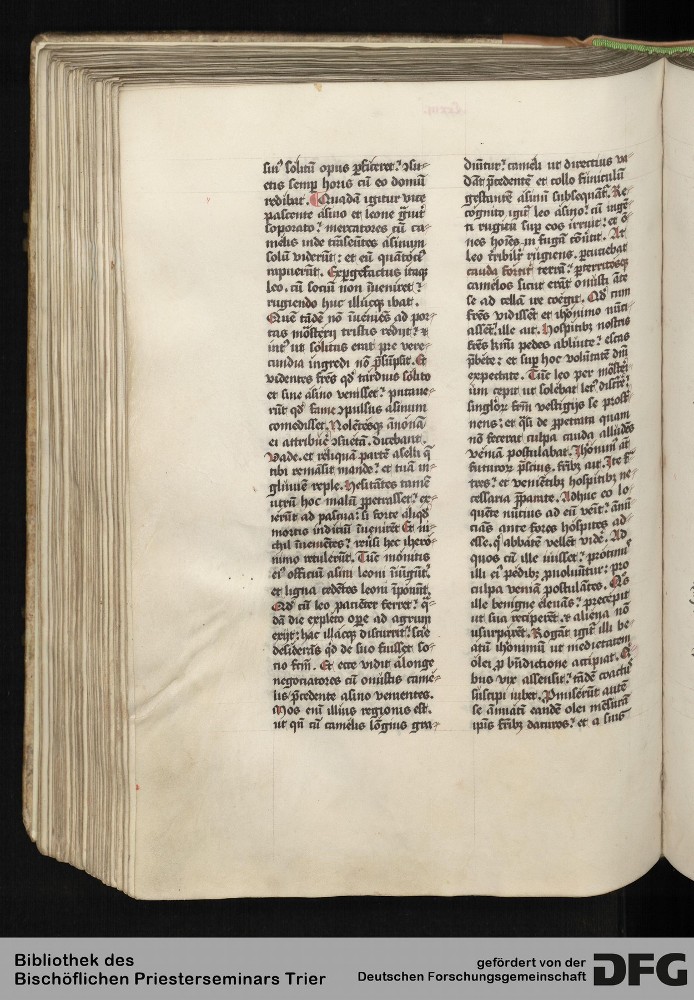 sui⁹ solitū opus ꝑficeret? ꝯsu-
etis semꝑ horis cū eo domū
redibat. Quadā igitur vice
pascente asino et leone gͣuit͛
soporato? mercatores cū ca-
melis inde trāseūtes asinum
solū viderūt: et eū quātoci⁹
rapuerūt. Expgefactus itaqꝫ
leo. cū sociū non īueniret?
rugiendo huc illucqꝫ ibat.
Quē tādē nō īueniēs ad por-
tas mōsterij tristis redijt? ⁊
int͛⁹ ut solitus erat pre vere-
cundia ingredi nō p̄sūpsit. Et
videntes fr̄es qd̄ tardius solito
et sine asino venisset? putaue-
rūt qd̄ fame ꝯpulsus asinum
comedisset. Nolētesqꝫ ānonā
ei attribue͛ ꝯsuetā. dicebant.
Vade. et reliquā partē aselli q̄
tibi remāsit mande? et tuā in-
gluuiē reple. Hesitātes tamē
utrū hoc malū ꝑpetrasset? ex-
ierūt ad pascua: si forte aliqd̄
mortis indiciū īuenirēt Et ni-
chil īuenientes? reūsi hec ihero-
nimo retulerūt. Tūc monitis
ei⁹ officiū asini leoni īiūgūt?
et ligna cedētes leoni īponūt.
Qd̄ cū leo patiēter ferret? q̄-
dā die expleto oꝑe ad agrum
exijt: hac illacqꝫ discurrit? scīe
desiderās qd̄ de suo fuisset so-
cio fc̄m. Et ecce vidit alonge
negociatores cū onustis came-
lis p̄cedente asino venientes.
Mos enī illius regionis est.
ut qn̄ cū camelis lōgius gra-
diūtur? cameli ut directius va-
dāt p̄cedentē et collo funiculū
gestantē asinū subsequāt͛. Re-
cognito igit͛ leo asino? cū ingē-
ti rugitu suꝑ eos irruit: et ō-
nes hoīes in fugā cōūtit. At
leo t͛ribilit͛ rugiens. ꝑcuciebat
cauda fortit͛ terrā? ꝑterritosqꝫ
camelos sicut erāt onusti āte
se ad cellā ire coegit. Qd̄ cum
fr̄es vidissēt et ih̄onimo nūci-
assēt? ille ait. Hospitibꝫ nostris
fr̄es kmī pedes abluite? escas
p̄bete: et suꝑ hoc volūtatē dnī
expectate. Tūc leo per mōster-
ium cepit ut solebat let⁹ discr̄e?
singlōꝝ fr̄m vestigijs se prost͛-
nens: et qͣsi de ꝑpetrata quam
nō fecerat culpa cauda alludēs
veniā postulabat. Ih̄onim⁹ at͛
futuroꝝ p̄scius. frībꝫ ait. Ite fr̄-
tres? et venientibꝫ hospitibꝫ ne-
cessaria p̄parate. Adhuc eo lo-
quēte nūcius ad eū venit? ānū-
ciās ante fores hospites ad-
esse. q̄ abbatē vellēt vidē. Ad
quos cū ille iuisset? protin⁹
illi ei⁹ pedibꝫ ꝓuoluūtur: pro
culpa veniā postulātes. Qͦs
ille benigne eleuās? precepit
ut sua reciperēt. ⁊ aliena nō
usurparēt. Rogāt igit͛ illi be-
atū ih̄onimū ut medietatem
olei p̄ bn̄dictione accipiat. Qͥ-
bus vix assensit? tādē coact⁹
suscipi iubet. Promiserūt autē
se ānuatī eandē olei mēsurā
ip̄is frībꝫ daturos? et a suis
Bibliothek des
Bischöflichen Priesterseminars Trier
gefördert von der
Deutschen Forschungsgemeinschaft
DFG